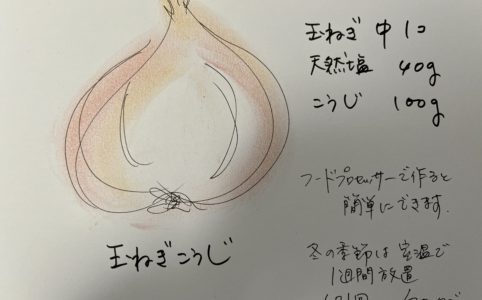 玉ねぎ 中 1コ
天然塩 40g
こうじ 100g
フードプロセッサーで作ると
簡単にできます.
玉ねぎこうじ
冬の季節は室温で
1週間放置